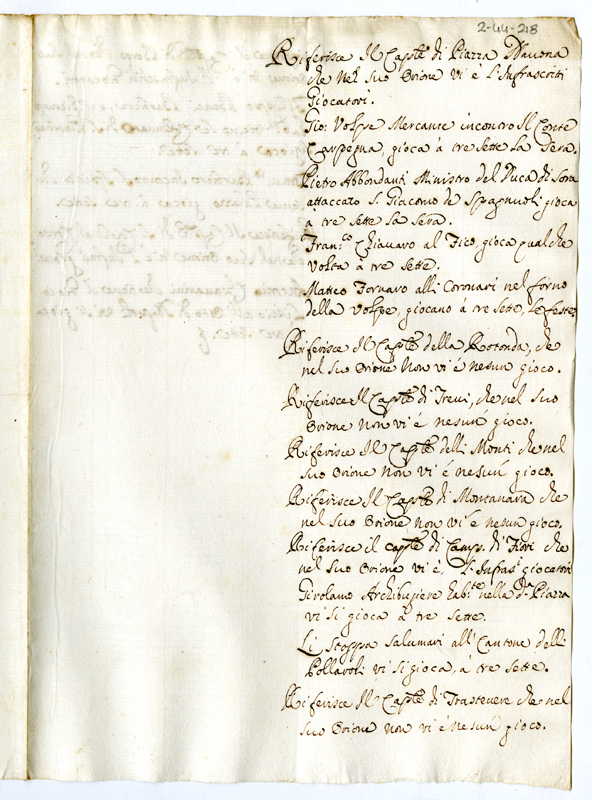 2-44-218
Riferisce Il Cap.le di Piazza Nauona
che nel suo Rione vi è l'Infrascritti
Giocatori.
Gio: Volpe Mercante incontro Il Conte
Carpegna, gioca à tre sette La sera.
Pietro Abbondanti Ministro del Duca di Sora
attaccato S. Giacomo de Spagnuoli gioca
à tre sette La sera.
Fran.co Chiavaro al Fico, gioca qualche
volta à tre sette.
Matteo Fornaro alli Coronari nel forno
della Volpe, giocano à tre sette, Le feste,
Riferisce Il Cap.le della Rotonda, che
nel suo Rione Non vi é nesun gioco.
Riferisce Il Cap.le di Trevi, che nel suo
Rione Non vi é nesun gioco.
Riferisce Il Cap.le delli Monti che nel
suo Rione Non vi é nesun gioco.
Riferisce Il Cap.le di Montanara che
nel suo Rione, non vi é nesun gioco.
Riferisce il cap.le di Camp. di Fiori che
nel suo Rione vi è, l'Infras.i giocatori
Girolamo Archibugiere hab.te nella d.a Piazza
vi si gioca à tre sette.
Li Stoppa salumari all'Cantone delli
Pollaroli vi si gioca, à tre sette.
Riferisce Il Cap.le di Trastevere che nel
suo Rione non vi é nesun gioco.